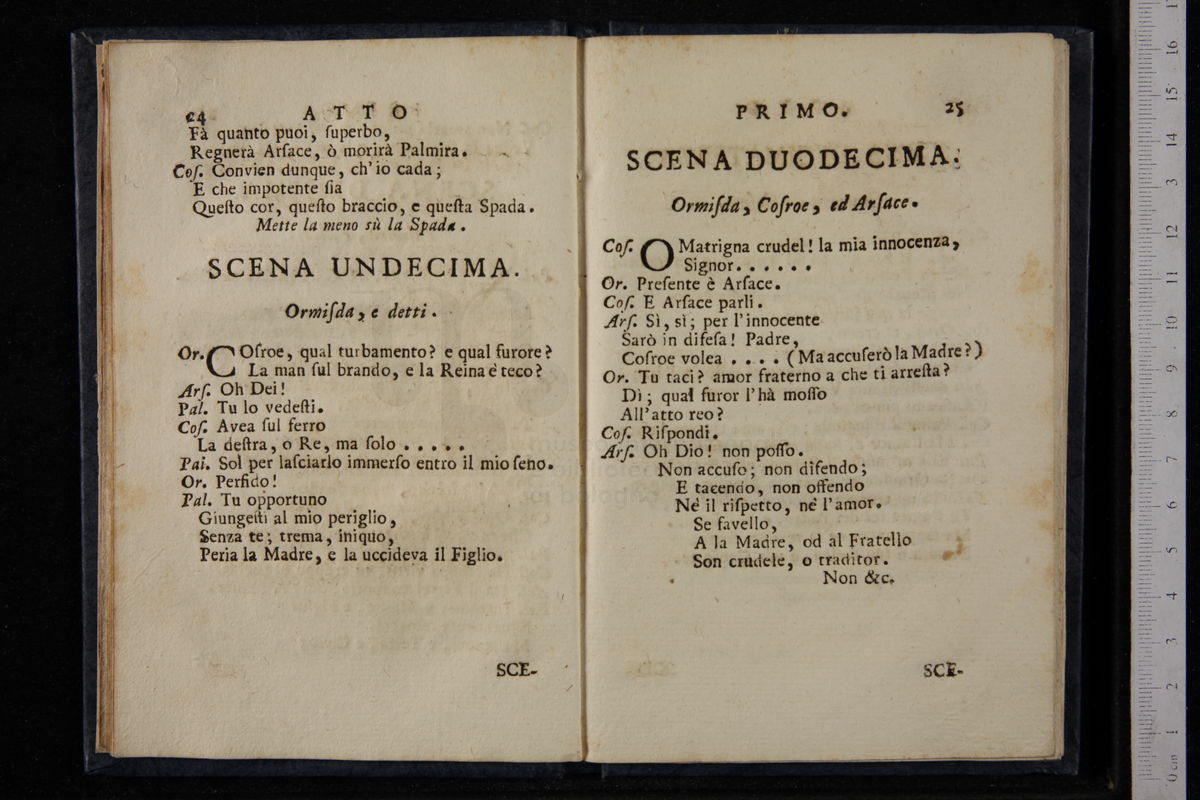 24 ATTO
Fà quanto puoi, ſuperbo,
Regnerà Arſace, ò morirà Palmira.
Coſ. Convien dunque, ch'io cada;
E che impotente ſia
Queſto cor, queſto braccio, e queſta Spada.
Mette la meno sù la Spada.
SCENA UNDECIMA.
Ormiſda, e detti.
Or. COſroe, qual turbamento? e qual furore?
La man ſul brando, e la Reina è teco?
Arſ. Oh Dei!
Pal. Tu lo vedeſti.
Coſ. Avea ſul ferro
La deſtra, o Re, ma ſolo . . . . .
Pal. Sol per laſciarlo immerſo entro il mio ſeno.
Or. Perfido!
Pal. Tu opportuno
Giungeſti al mio periglio,
Senza te; trema, iniquo,
Peria la Madre, e la uccideva il Figlio.
SCE-
PRIMO. 25
SCENA DUODECIMA.
Ormiſda, Coſroe, ed Arſace.
Coſ. O Matrigna crudel! la mia innocenza,
Signor. . . . . .
Or. Preſente è Arſace.
Coſ. E Arſace parli.
Arſ. Sì, sì; per l'innocente
Sarò in difeſa! Padre,
Coſroe volea . . . . (Ma accuſerò la Madre?)
Or. Tu taci? amor fraterno a che ti arreſta?
Dì; qual furor l'hà moſſo
All'atto reo?
Coſ. Riſpondi.
Arſ. Oh Dio! non poſſo.
Non accuſo; non difendo;
E tacendo, non offendo
Nè il riſpetto, nè l'amor.
Se favello,
A la Madre, od al Fratello
Son crudele, o traditor.
Non &c.
SCE-
0 cm 1 2 3 4 5 6 7 8 9 10 11 12 13 14 15 16